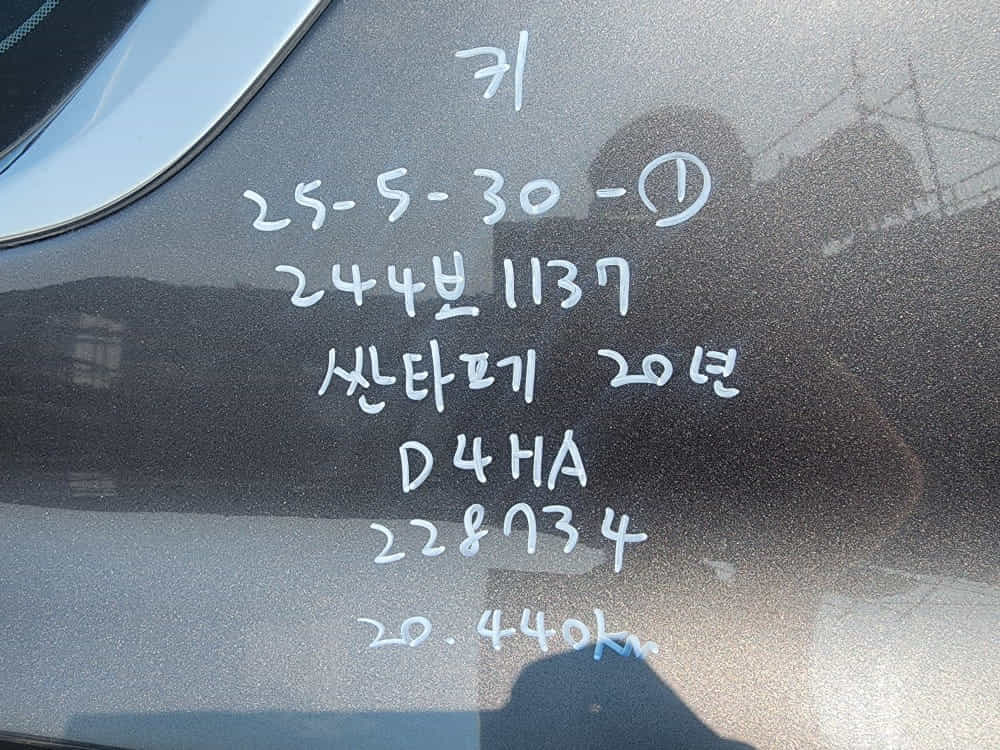 키
25-5-30-①
244보1137
싼타페기 20년
D4HA
228734
20.440km